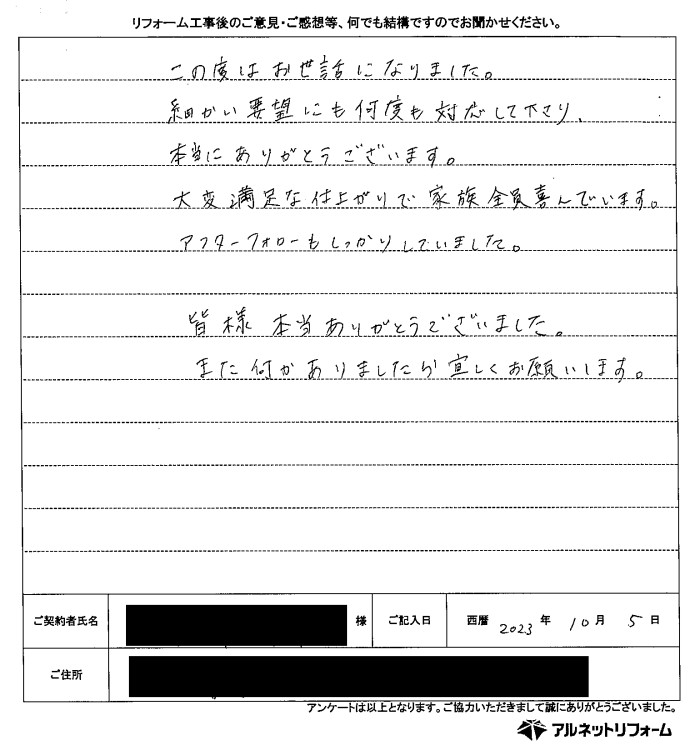 リフォーム工事後のご意見・ご感想等、何でも結構ですのでお聞かせください。
この度はお世話になりました。
細かい要望にも何度も対応して下さり、
本当にありがとうございます。
大変満足な仕上がりで家族全員喜んでいます。
アフターフォローもしっかりしていました。
皆様本当ありがとうございました。
また何かありましたら宜しくお願いします。
ご契約者氏名 様 ご記入日 西暦 2023 年 10 月 5 日
ご住所
アンケートは以上となります。ご協力いただきまして誠にありがとうございました。
アルネットリフォーム